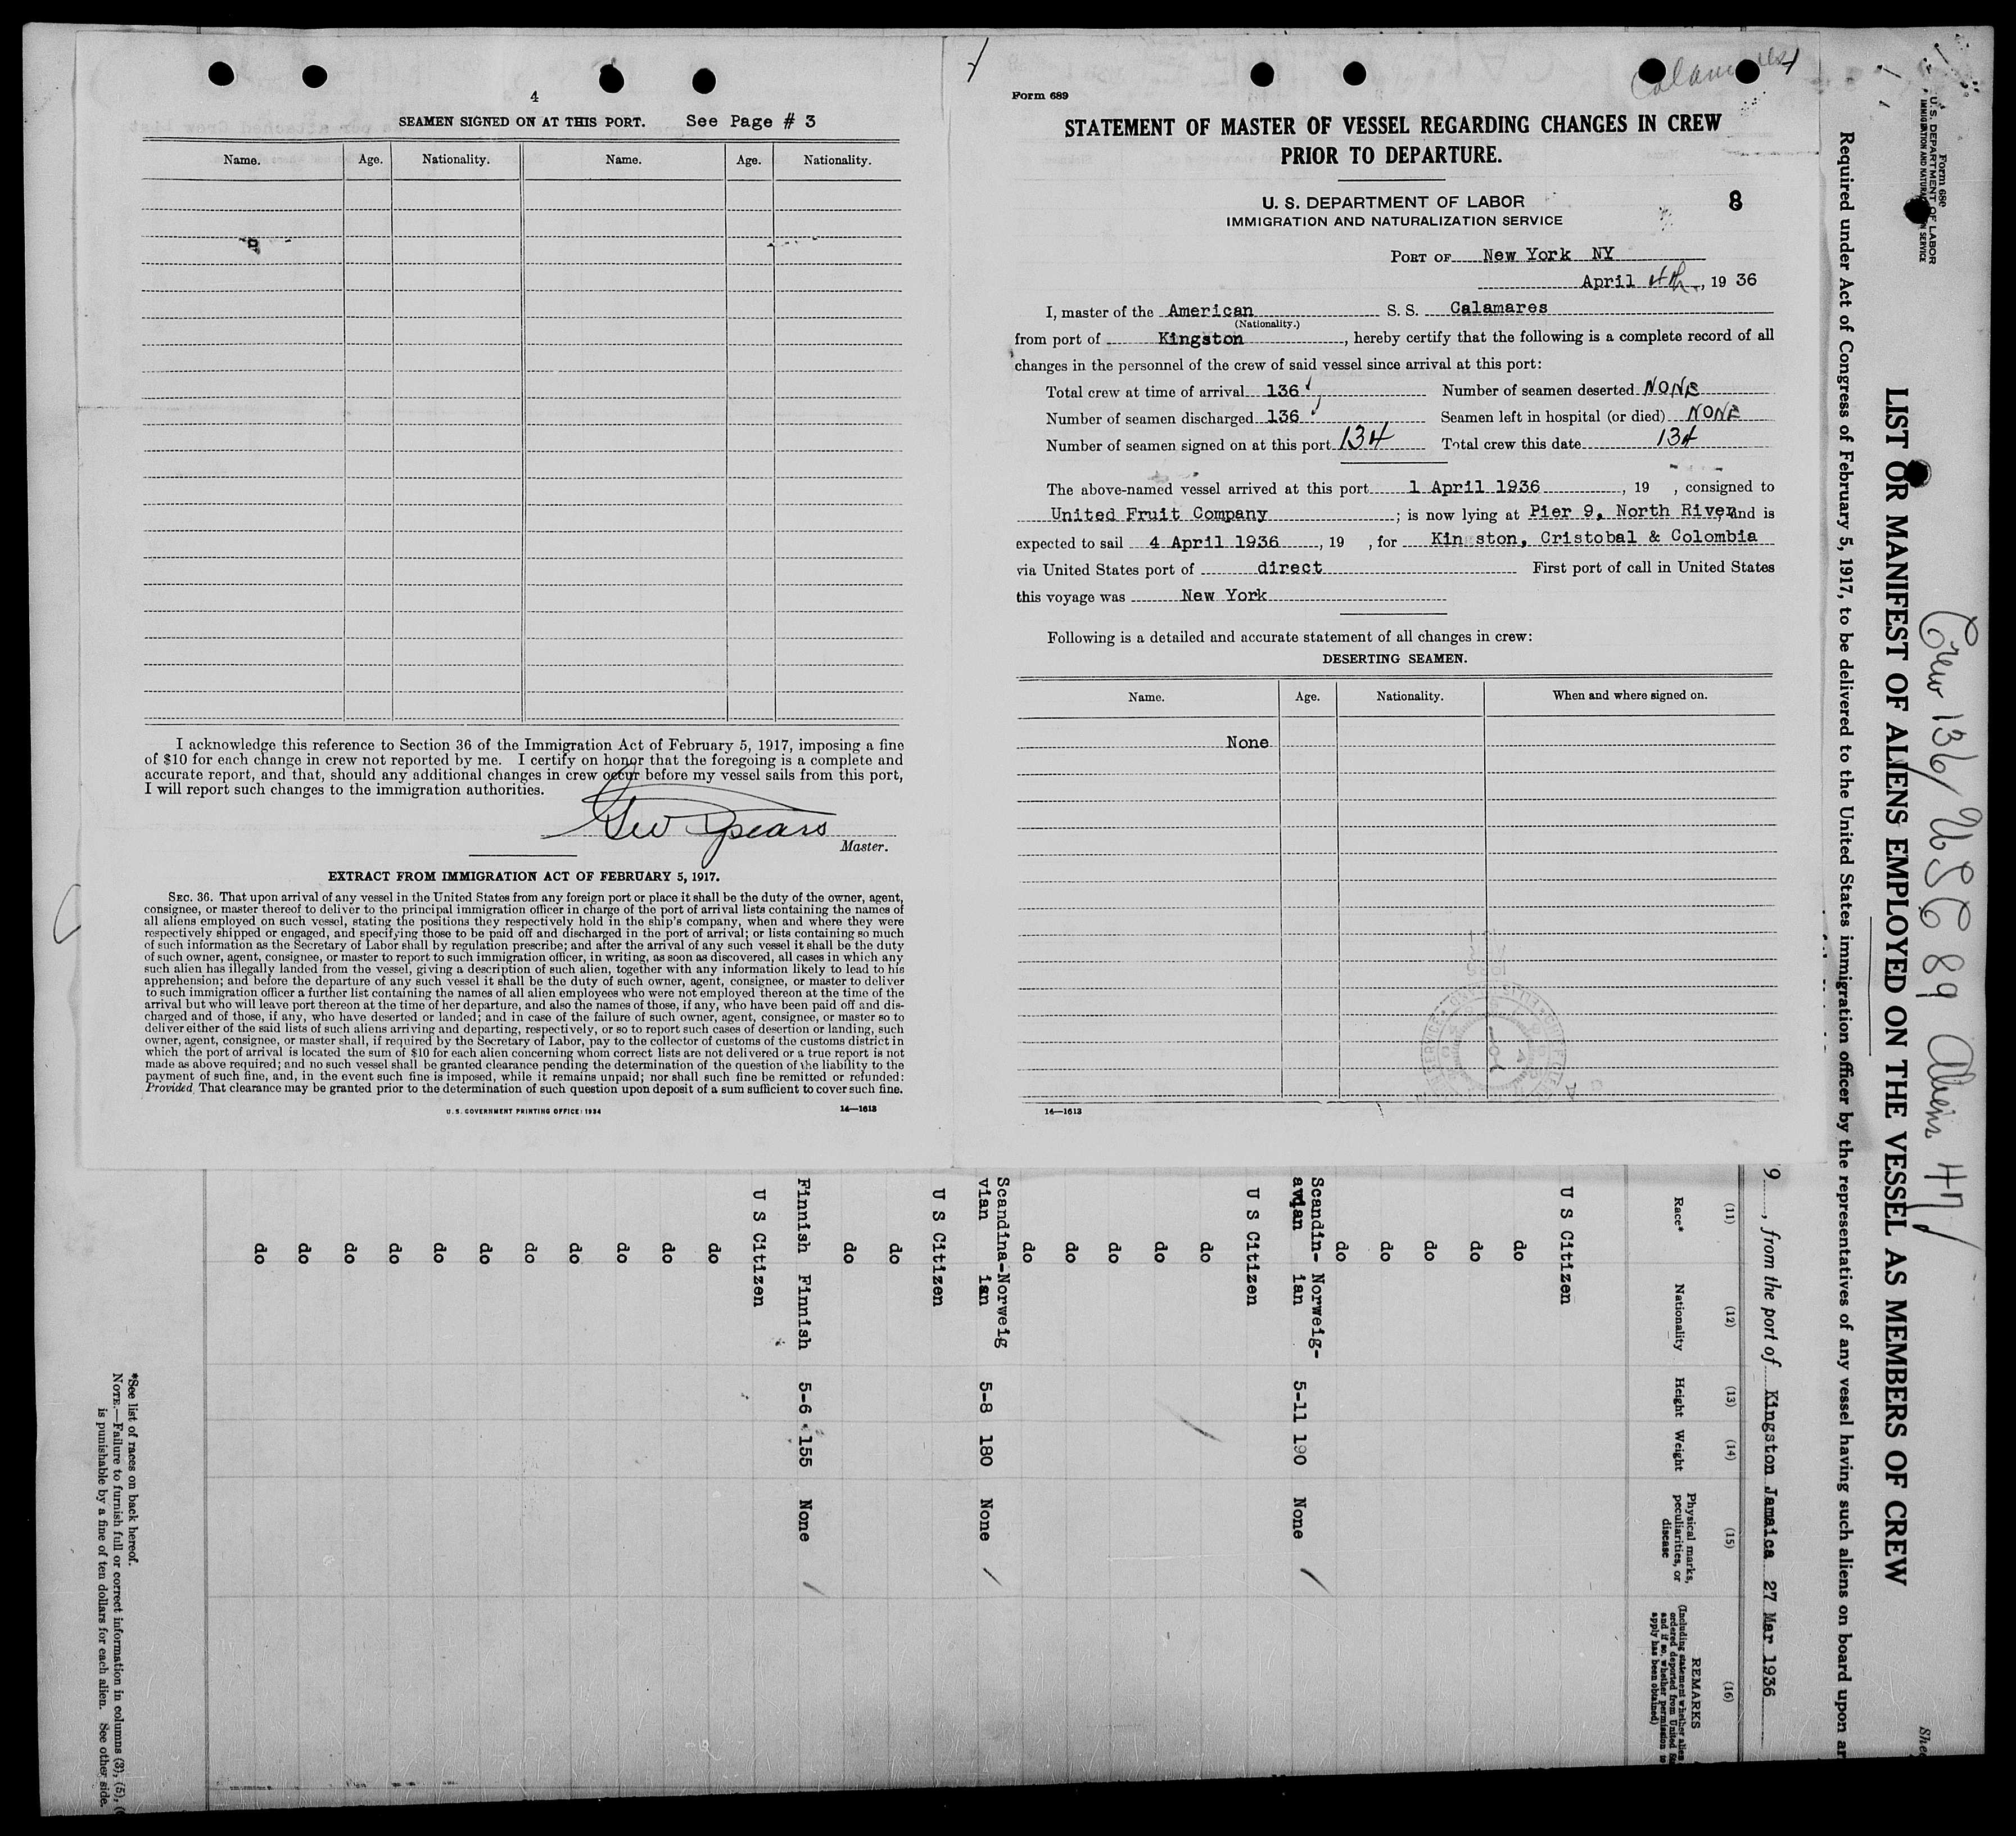 4
SEAMEN SIGNED ON AT THIS PORT. See Page # 3
Name. Age. Nationality. Name. Age. Nationality.
I acknowledge this reference to Section 36 of the Immigration Act of February 5, 1917, imposing a fine
of $10 for each change in crew not reported by me. I certify on honor that the foregoing is a complete and
accurate report, and that, should any additional changes in crew occur before my vessel sails from this port,
I will report such changes to the immigration authorities.
Geo Spears
Master.
EXTRACT FROM IMMIGRATION ACT OF FEBRUARY 5, 1917.
SEC. 36. That upon arrival of any vessel in the United States from any foreign port or place it shall be the duty of the owner, agent,
consignee, or master thereof to deliver to the principal immigration officer in charge of the port of arrival lists containing the names of
all aliens employed on such vessel, stating the positions they respectively hold in the ship's company, when and where they were
respectively shipped or engaged, and specifying those to be paid off and discharged in the port of arrival; or lists containing so much
of such information as the Secretary of Labor shall by regulation prescribe; and after the arrival of any such vessel it shall be the duty
of such owner, agent, consignee, or master to report to such immigration officer, in writing, as soon as discovered, all cases in which any
such alien has illegally landed from the vessel, giving a description of such alien, together with any information likely to lead to his
apprehension; and before the departure of any such vessel it shall be the duty of such owner, agent, consignee, or master to deliver
to such immigration officer a further list containing the names of all alien employees who were not employed thereon at the time of the
arrival but who will leave port thereon at the time of her departure, and also the names of those, if any, who have been paid off and dis-
charged and of those, if any, who have deserted or landed; and in case of the failure of such owner, agent, consignee, or master so to
deliver either of the said lists of such aliens arriving and departing, respectively, or so to report such cases of desertion or landing, such
owner, agent, consignee, or master shall, if required by the Secretary of Labor, pay to the collector of customs of the customs district in
which the port of arrival is located the sum of $10 for each alien concerning whom correct lists are not delivered or a true report is not
made as above required; and no such vessel shall be granted clearance pending the determination of the question of the liability to the
payment of such fine, and, in the event such fine is imposed, while it remains unpaid; nor shall such fine be remitted or refunded:
Provided, That clearance may be granted prior to the determination of such question upon deposit of a sum sufficient to cover such fine.
U. S. GOVERNMENT PRINTING OFFICE: 1934 14—1613
Calamares
Form 689
STATEMENT OF MASTER OF VESSEL REGARDING CHANGES IN CREW
PRIOR TO DEPARTURE.
U. S. DEPARTMENT OF LABOR 8
IMMIGRATION AND NATURALIZATION SERVICE
PORT OF New York NY
April 4th, 19 36
I, master of the American S. S. Calamares
(Nationality.)
from port of Kingston, hereby certify that the following is a complete record of all
changes in the personnel of the crew of said vessel since arrival at this port:
Total crew at time of arrival 136 Number of seamen deserted NONE
Number of seamen discharged 136 Seamen left in hospital (or died) NONE
Number of seamen signed on at this port 134 Total crew this date 134
The above-named vessel arrived at this port 1 April 1936, 19 , consigned to
United Fruit Company; is now lying at Pier 9, North River, and is
expected to sail 4 April 1936, 19 , for Kin ston, Cristobal & Colombia
via United States port of direct First port of call in United States
this voyage was New York
Following is a detailed and accurate statement of all changes in crew:
DESERTING SEAMEN.
Name. Age. Nationality. When and where signed on.
None
14—1613
Form 680
U. S. DEPARTMENT OF LABOR
IMMIGRATION AND NATURALIZATION SERVICE
Crew 136/ USC 89 Aliens 47/
LIST OR MANIFEST OF ALIENS EMPLOYED ON THE VESSEL AS MEMBERS OF CREW
Required under Act of Congress of February 5, 1917, to be delivered to the United States immigration officer by the representatives of any vessel having such aliens on board upon ar
9, from the port of Kingston Jamaica 27 Mar 1936
(11) (12) (13) (14) (15) (16)
Race* Nationality Height Weight Physical marks, peculiarities, or disease REMARKS
(Including statement whether alien
ordered deported from United Sta
and if so, whether permission to
apply has been obtained)
U S Citizen
do
do
do
do
do
Scandin- Norweig-
avian ian 5-11 190 None
U S Citizen
do
do
do
do
do
Scandina-Norweig
vian ian 5-8 180 None
U S Citizen
do
do
Finnish Finnish 5-6 155 None
U S Citizen
do
do
do
do
do
do
do
do
do
do
do
*See list of races on back hereof.
NOTE.—Failure to furnish full or correct information in columns (3), (5), (
is punishable by a fine of ten dollars for each alien. See other side.